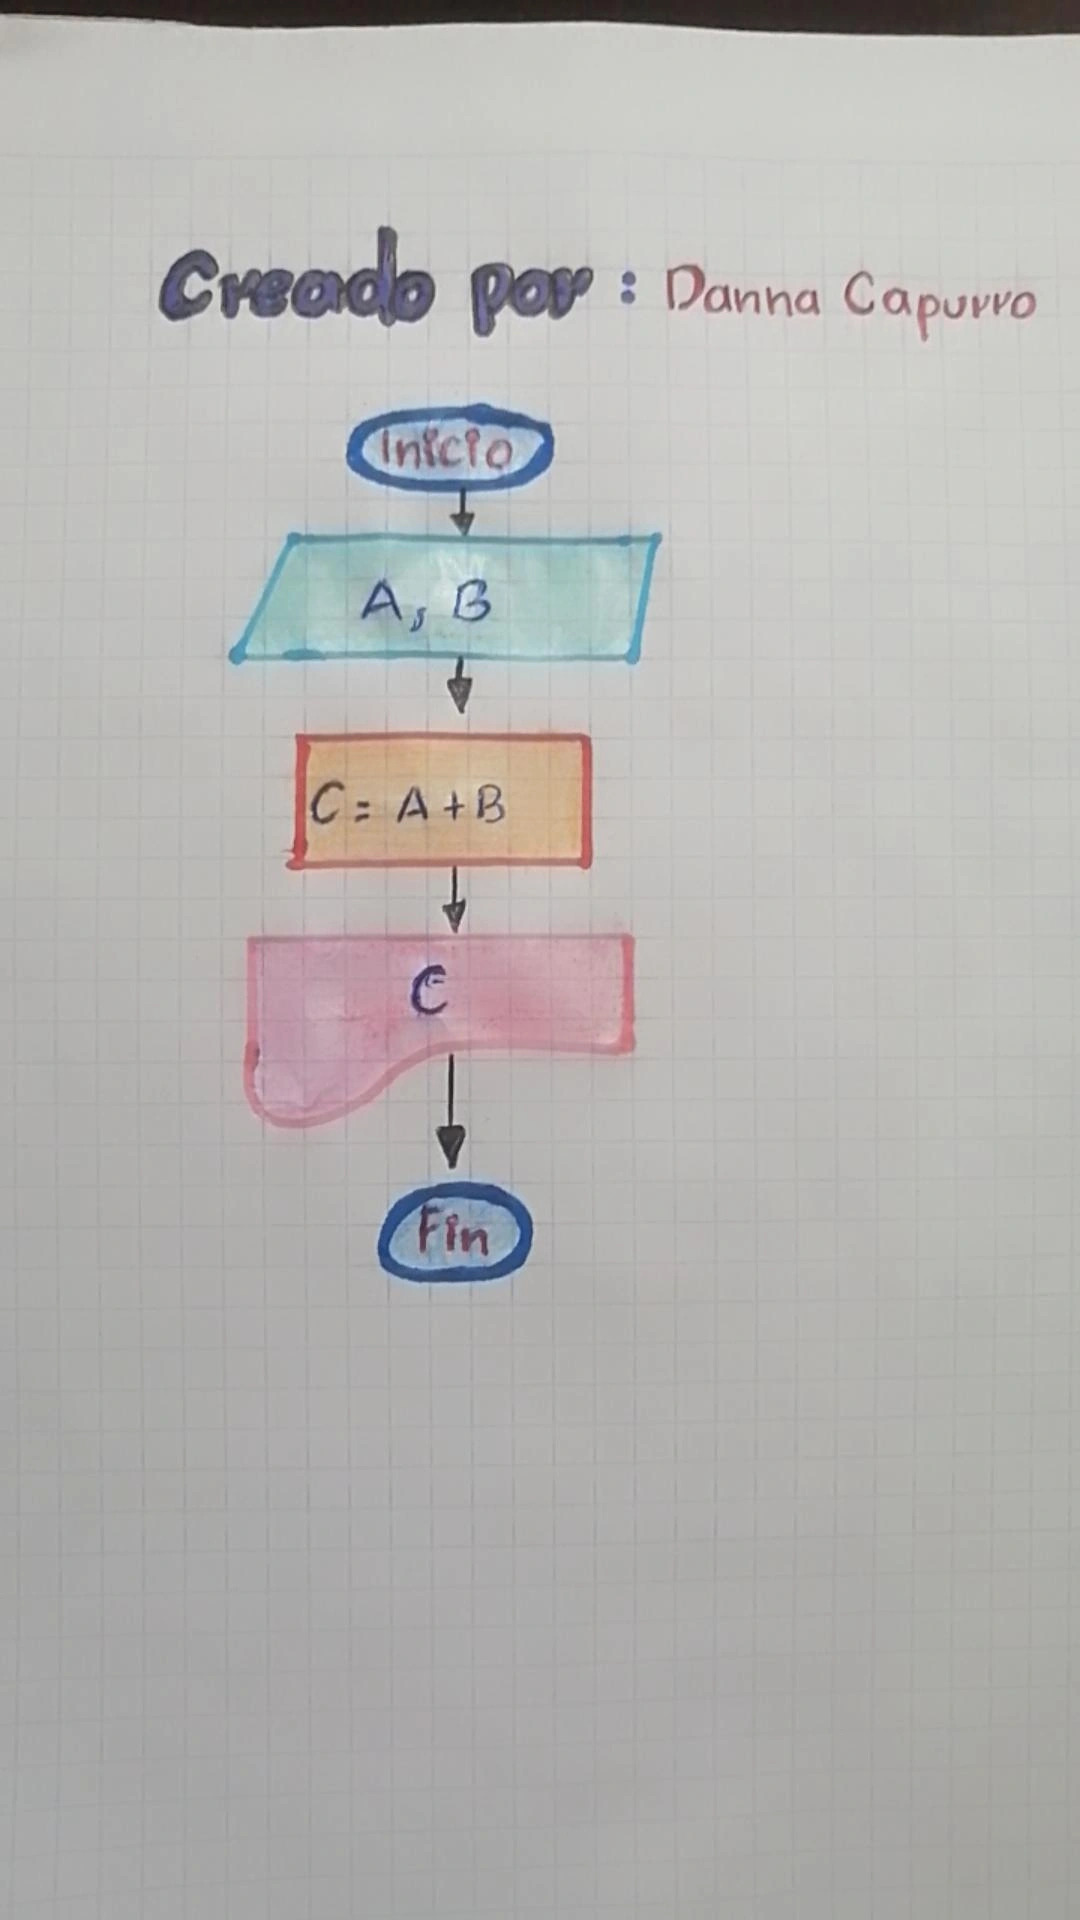 Creado por : Danna Capurro
Inicio
A, B
C = A + B
C
Fin